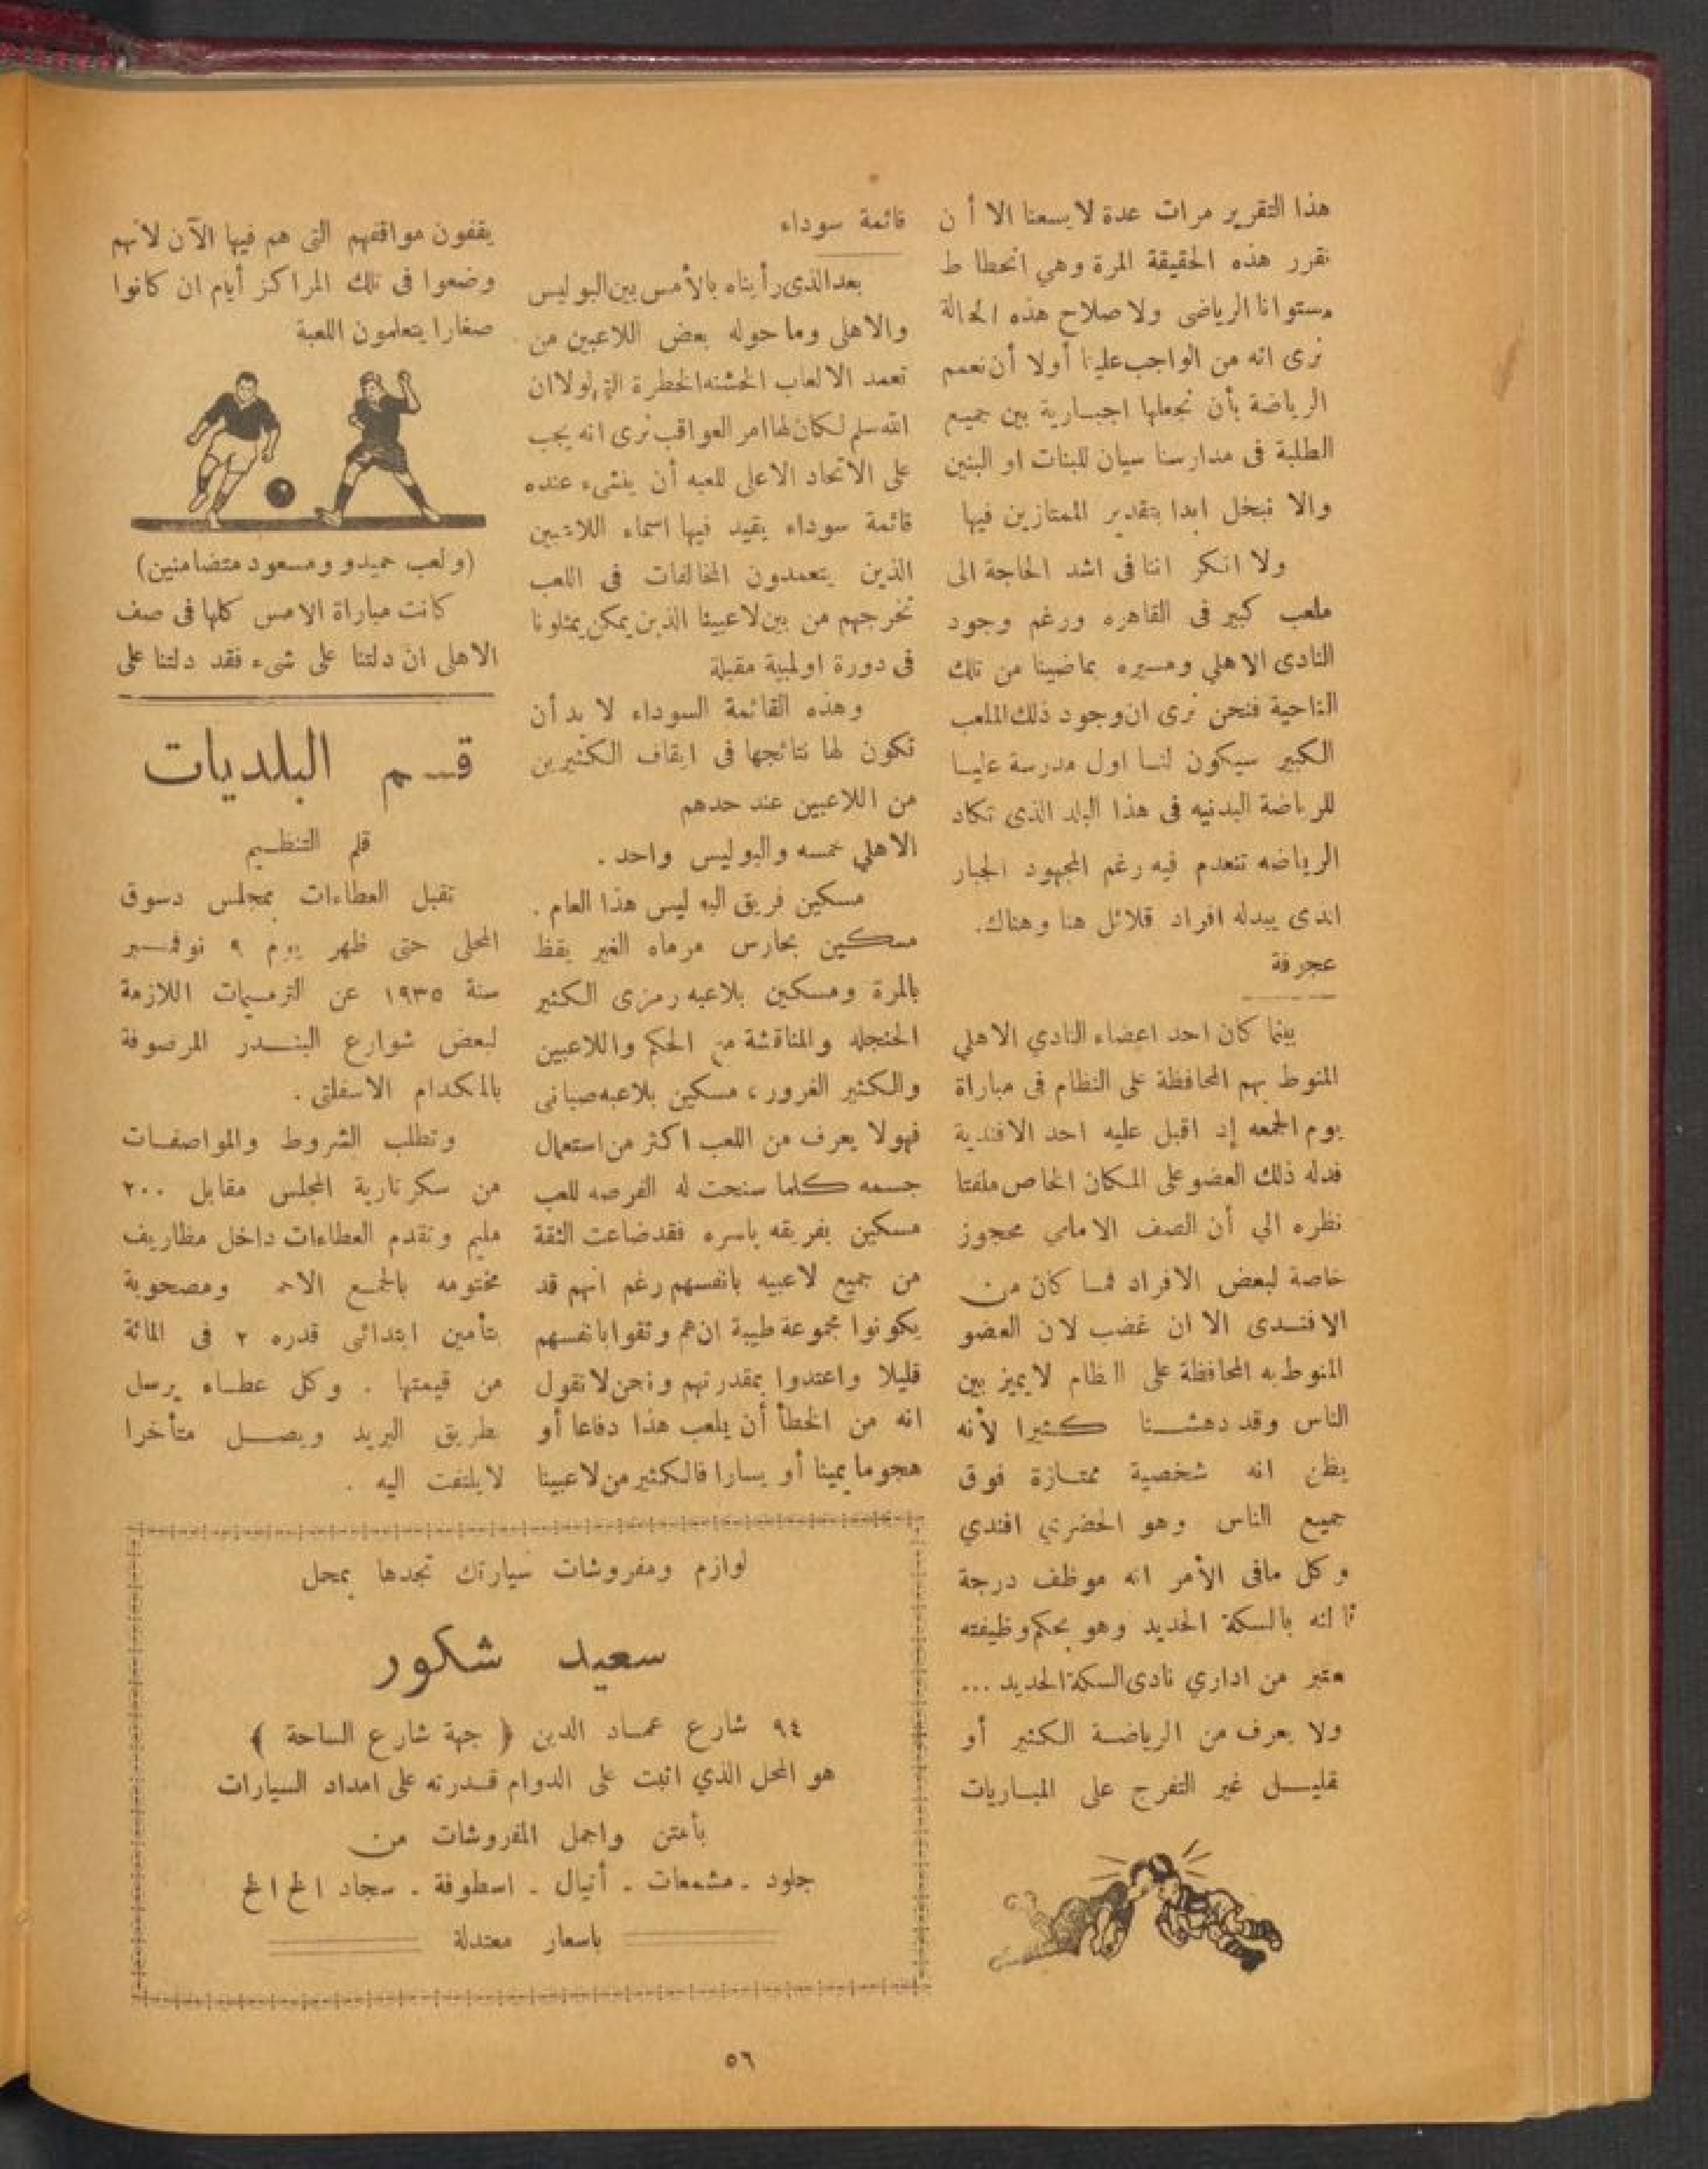 هذا التقرير مرات عدة لا يسعنا الا أ ن
نقرر هذه الحقيقة المرة وهي انحطا ط
مستوانا الرياضى ولا صلاح هذه الحالة
نرى انه من الواجب علينا أولا أن نعمم
الرياضة بأن نجعلها اجبارية بين جميع
الطلبة فى مدارسنا سيان للبنات او البنين
والا نبخل ابدا بتقدير الممتازين فيها
ولا انكر اننا فى اشد الحاجة الى
ملعب كبير فى القاهره ورغم وجود
النادى الاهلي ومسيره بماضينا من تلك
الناحية فنحن نرى ان وجود ذلك الملعب
الكبير سيكون لنا اول مدرسة عليا
للرياضة البدنيه فى هذا البلد الذى تكاد
الرياضه تنعدم فيه رغم المجهود الجبار
الذى يبدله افراد قلائل هنا وهناك.
عجرفة
بينما كان احد اعضاء النادي الاهلي
المنوط بهم المحافظة على النظام فى مباراة
يوم الجمعه إذ اقبل عليه احد الافندية
فدله ذلك العضو على المكان الخاص ملفتا
نظره الي أن الصف الامامي محجوز
خاصة لبعض الافراد فما كان من
الافندى الا ان غضب لان العضو
المنوط به المحافظة على النظام لا يميز بين
الناس وقد دهشنا كثيرا لأنه
يظن انه شخصية ممتازة فوق
جميع الناس وهو الحضري افندي
وكل مافى الأمر انه موظف درجة
ثا لثه بالسكة الحديد وهو بحكم وظيفته
معتبر من اداري نادى السكة الحديد ...
ولا يعرف من الرياضة الكثير أو
قليل غير التفرج على المباريات
قائمة سوداء
بعد الذى رأيناه بالأمس بين البوليس
والاهلى وما حوله بعض اللاعبين من
تعمد الالعاب الخشنه الخطرة التى لولا ان
الله سلم لكان لها امر العواقب نرى انه يجب
على الاتحاد الاعلى للعبه أن ينشىء عنده
قائمة سوداء يقيد فيها اسماء اللاعبين
الذين يتعمدون المخالفات فى اللعب
تخرجهم من بين لاعبينا الذين يمكن يمثلونا
فى دورة اولمبية مقبلة
وهذه القائمة السوداء لا بد أن
تكون لها نتائجها فى ايقاف الكثيرين
من اللاعبين عند حدهم
الاهلي خمسه والبوليس واحد .
مسكين فريق البوليس هذا العام .
مسكين بحارس مرماه الغير يقظ
بالمرة ومسكين بلاعبه رمزى الكثير
الحنجله والمناقشة مع الحكم واللاعبين
والكثير الغرور ، مسكين بلاعبه صبانى
فهولا يعرف من اللعب اكثر من استعمال
جسمه كلما سنحت له الفرصه للعب
مسكين بفريقه باسره فقد ضاعت الثقة
من جميع لاعبيه بانفسهم رغم انهم قد
يكونوا مجموعة طيبة ان هم وثقوا بانفسهم
قليلا واعتدوا بمقدرتهم ونحن لا نقول
انه من الخطأ أن يلعب هذا دفاعا أو
هجوما يمينا أو يسارا فالكثير من لاعبينا
يقفون مواقفهم التى هم فيها الآن لأنهم
وضعوا فى تلك المراكز أيام ان كانوا
صغارا يتعلمون اللعبة
(ولعب حميدو ومسعود متضامنين)
كانت مباراة الامس كلها فى صف
الاهلى ان دلتنا على شىء فقد دلتنا على
قسم البلديات
قلم التنظيم
تقبل العطاءات بمجلس دسوق
المحلى حتى ظهر يوم ٩ نوفمبر
سنة ١٩٣٥ عن الترميمات اللازمة
لبعض شوارع البندر المرصوفة
بالمكدام الاسفلتى .
وتطلب الشروط والمواصفات
من سكرتارية المجلس مقابل ٢٠٠
مليم وتقدم العطاءات داخل مظاريف
مختومه بالجمع الاحمر ومصحوبة
بتأمين ابتدائى قدره ٢ فى المائة
من قيمتها . وكل عطاء يرسل
بطريق البريد ويصل متأخرا
لا يلتفت اليه .
لوازم ومفروشات سيارتك تجدها بمحل
سعيد شكور
٩٤ شارع عماد الدين ( جهة شارع الساحة )
هو المحل الذي اثبت على الدوام قدرته على امداد السيارات
بأمتن واجمل المفروشات من
جلود . مشمعات . أتيال . اسطوفة . سجاد الخ الخ
باسعار معتدلة
٥٦